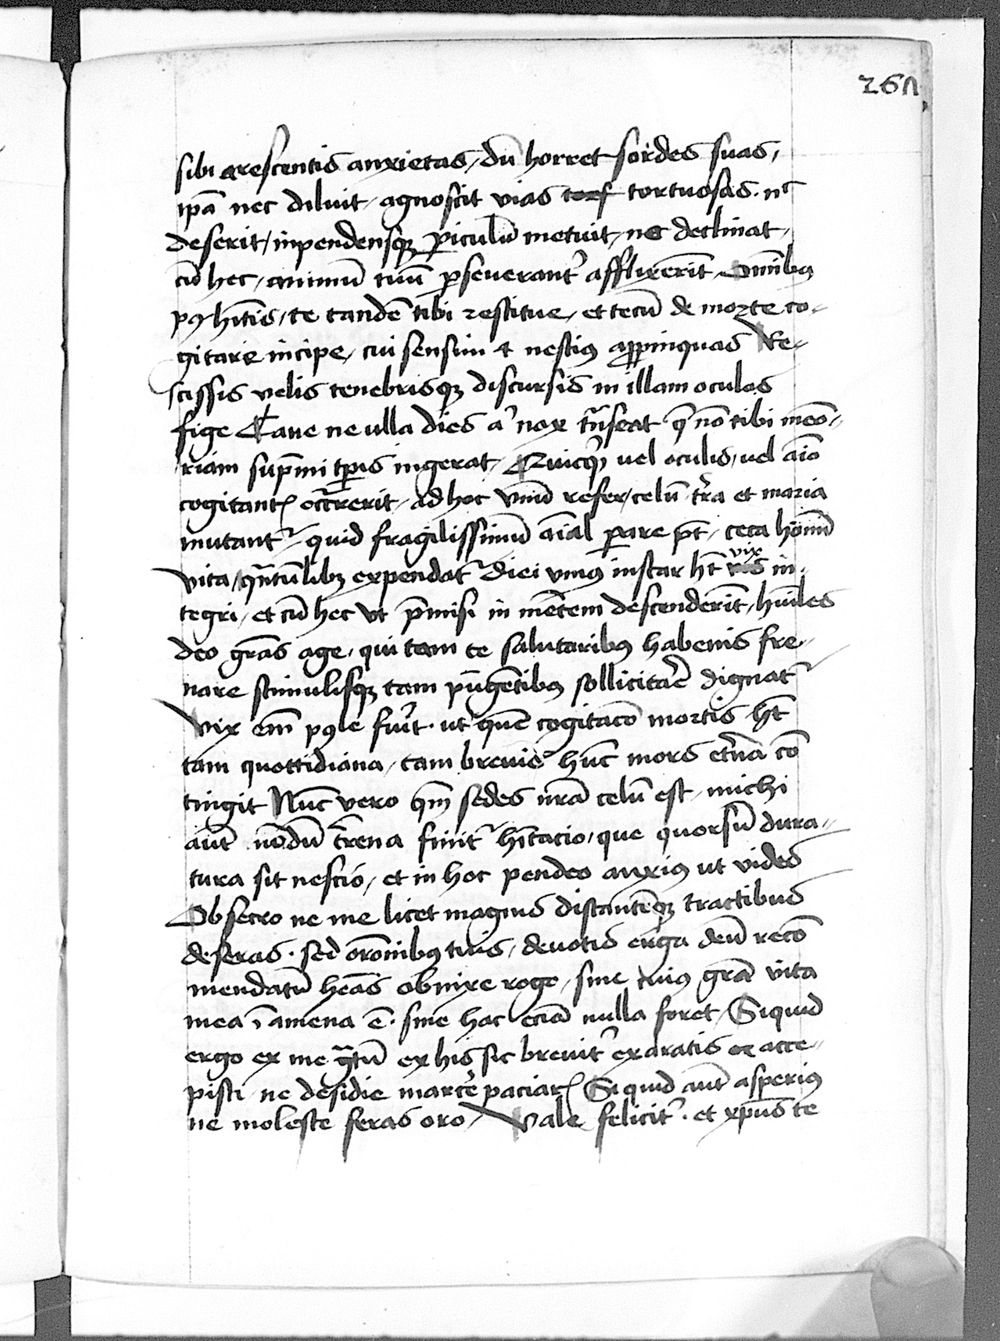 267
sibi arescentis anxietas, dū horret sordes suas,
ip̄a nec diluit, agnoscit vias tortuosas. nc̄
deserit, inpendensqꝫ ꝑiculū metuit, nec declinat,
cū hec, animū tuū ꝑseverant᷒ afflixerīt Om̄ibꝫ
pꝰhītis, te tandē tibi restitue, et tecū de morte co-
gitare incipe, cui sensim et nesciꝰ aꝓpinquas Re-
scissis velis tenebrisqꝫ discursis in illam oculos
fige Cave ne ulla dies a᷒ nox tn̄seat q̄ nō tibi meō-
riam supmi tꝑis ingerat, Quicq᷒d vel oculis, vel aīo
cogitantꝭ occ᷒rerit, ad hoc vnū refer, celū t᷒ra et maria
mutant᷒, quid fragilissimū aīal ꝑare pt̄, ceca hoīnū
vita, q̄ntūlibꝫ expendat᷒ diei vniꝰ instar ht̄ vix in-
tegri, et cū hec vt p̄misi in mētem descenderīt, hūiles
deo grās age, qui tam te salutaribꝰ habenis fre-
nare stimulisqꝫ tam pūgētibꝰ sollicitar̄ dignat᷒
Vix em̄ pꝰle fuīt. ut quē cogitacō mortis ht̄
tam quottidiana, tam brevis hūc mors et᷒na cō
tingit Nūc vero qm̄ sedes nrā celū est, michi
aūt nōdū t᷒rena finit᷒ hītacio, que quorsū dura-
tura sit nescio, et in hoc pendeo anxiꝰ ut vides
Obsecro ne me licet magnis distantēqꝫ tractibus
deseras. sed orōnibꝰ tuis, devotis erga deū recō
mendatū hēas obnixe rogo, sine tuis grā vita
mea ī amena ē. sine hac eciā nulla foret, Siquid
ergo ex me g᷒tū ex his sic brevit᷒ exaratis acce-
pisti, ne desidie marcēr paciarꝭ Siquid aūt asperiꝰ
ne moleste feras oro, Vale felicit᷒. et xp̄us te